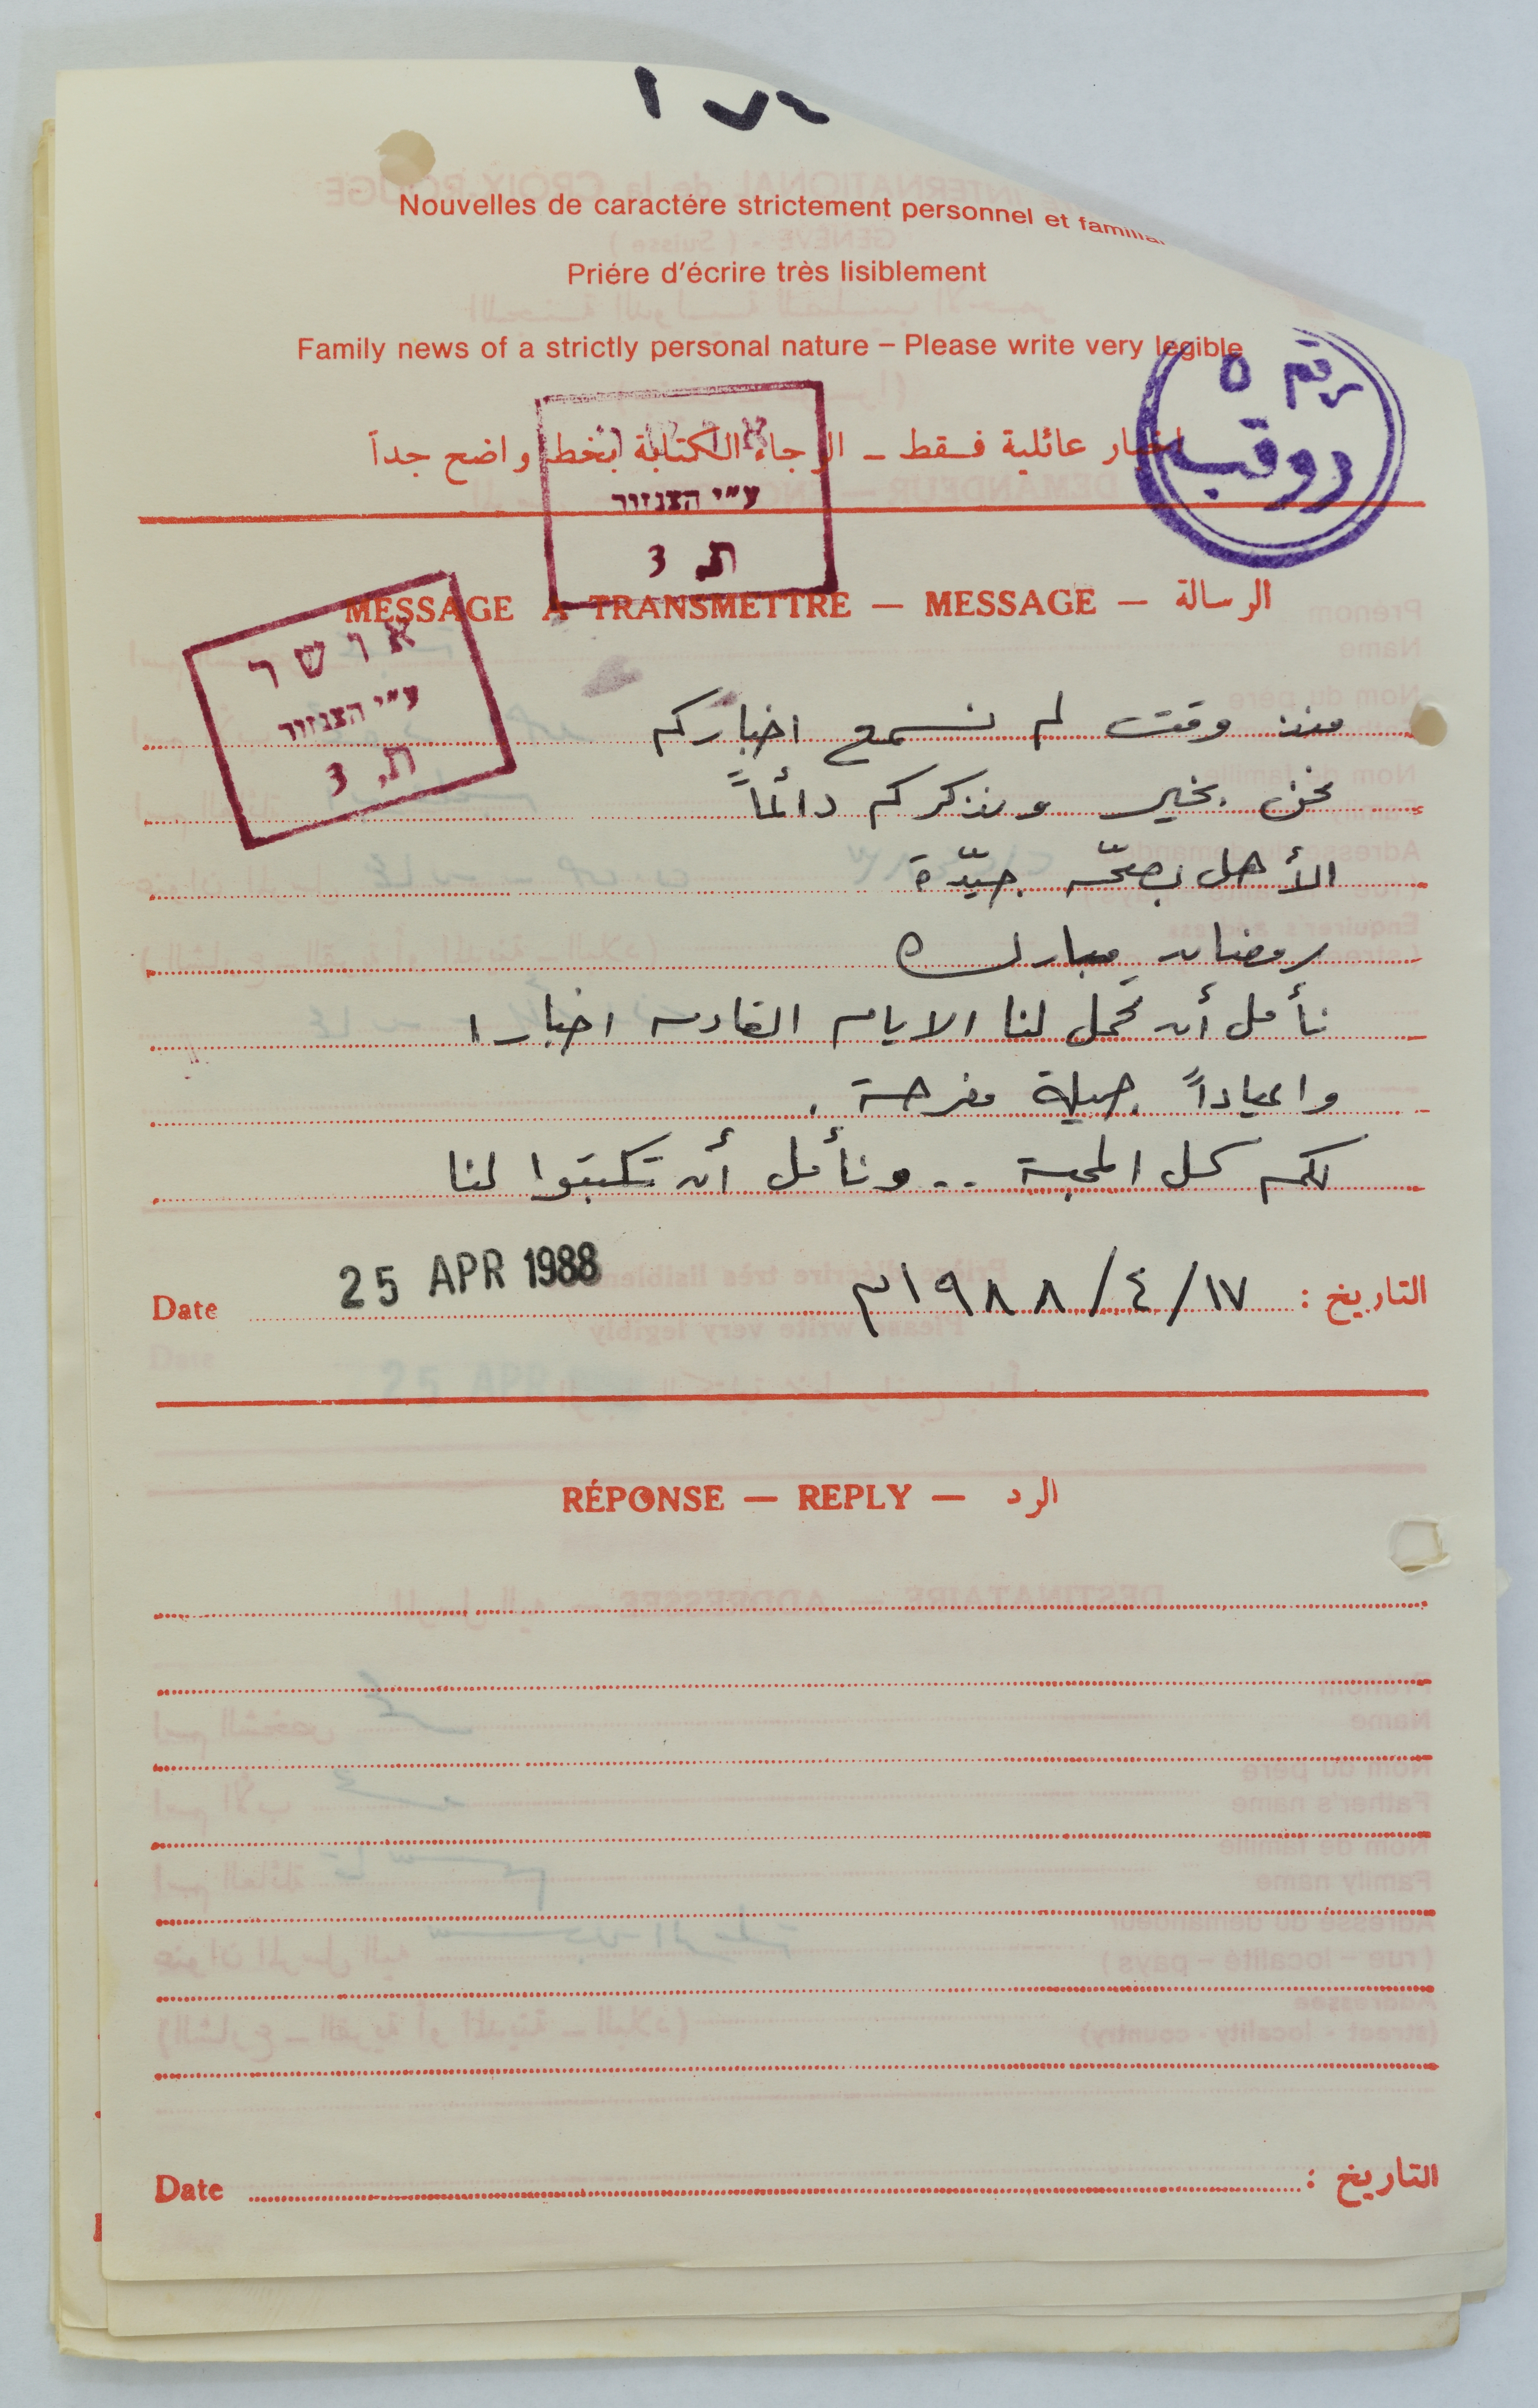 ١٧٢
Nouvelles de caractére strictement personnel et familial
Priére d'écrire très lisiblement
Family news of a strictly personal nature – Please write very legible
اخبار عائلية فـقط ـ الرجاء الكتابة بخط واضح جداً
رقم ٥
روقب
א ו ש ר
ע״י הצנזור
ת. 3
MESSAGE A TRANSMETTRE — MESSAGE — الرسالة
א ו ש ר
ע״י הצנזור
ת. 3
منذ وقت لم نسمع اخباركم
نحن بخير ونذكركم دائماً
الأهل بصحّة جيّدة
رمضان مبارك
نأمل أن تحمل لنا الايام القادمه اخبارا
واعياداً جميلة مفرحة .
لكم كل المحبة .. ونأمل أن تكتبوا لنا
التاريخ : ١٩٨٨/٤/١٧م 25 APR 1988 Date
RÉPONSE — REPLY — الرد
Date التاريخ :